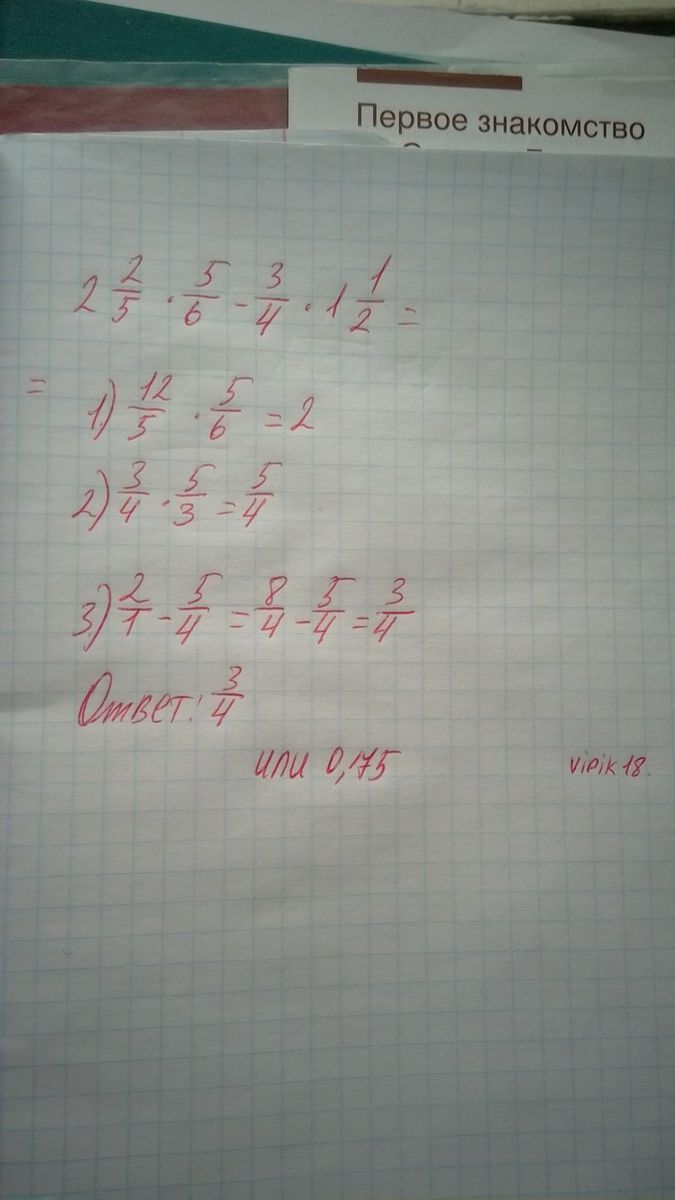 Первое знакомство
2 2/5 · 5/6 - 3/4 · 1 1/2 =
= 1) 12/5 · 5/6 = 2
2) 3/4 · 5/3 = 5/4
3) 2/1 - 5/4 = 8/4 - 5/4 = 3/4
Ответ: 3/4
или 0,175
vipik18.